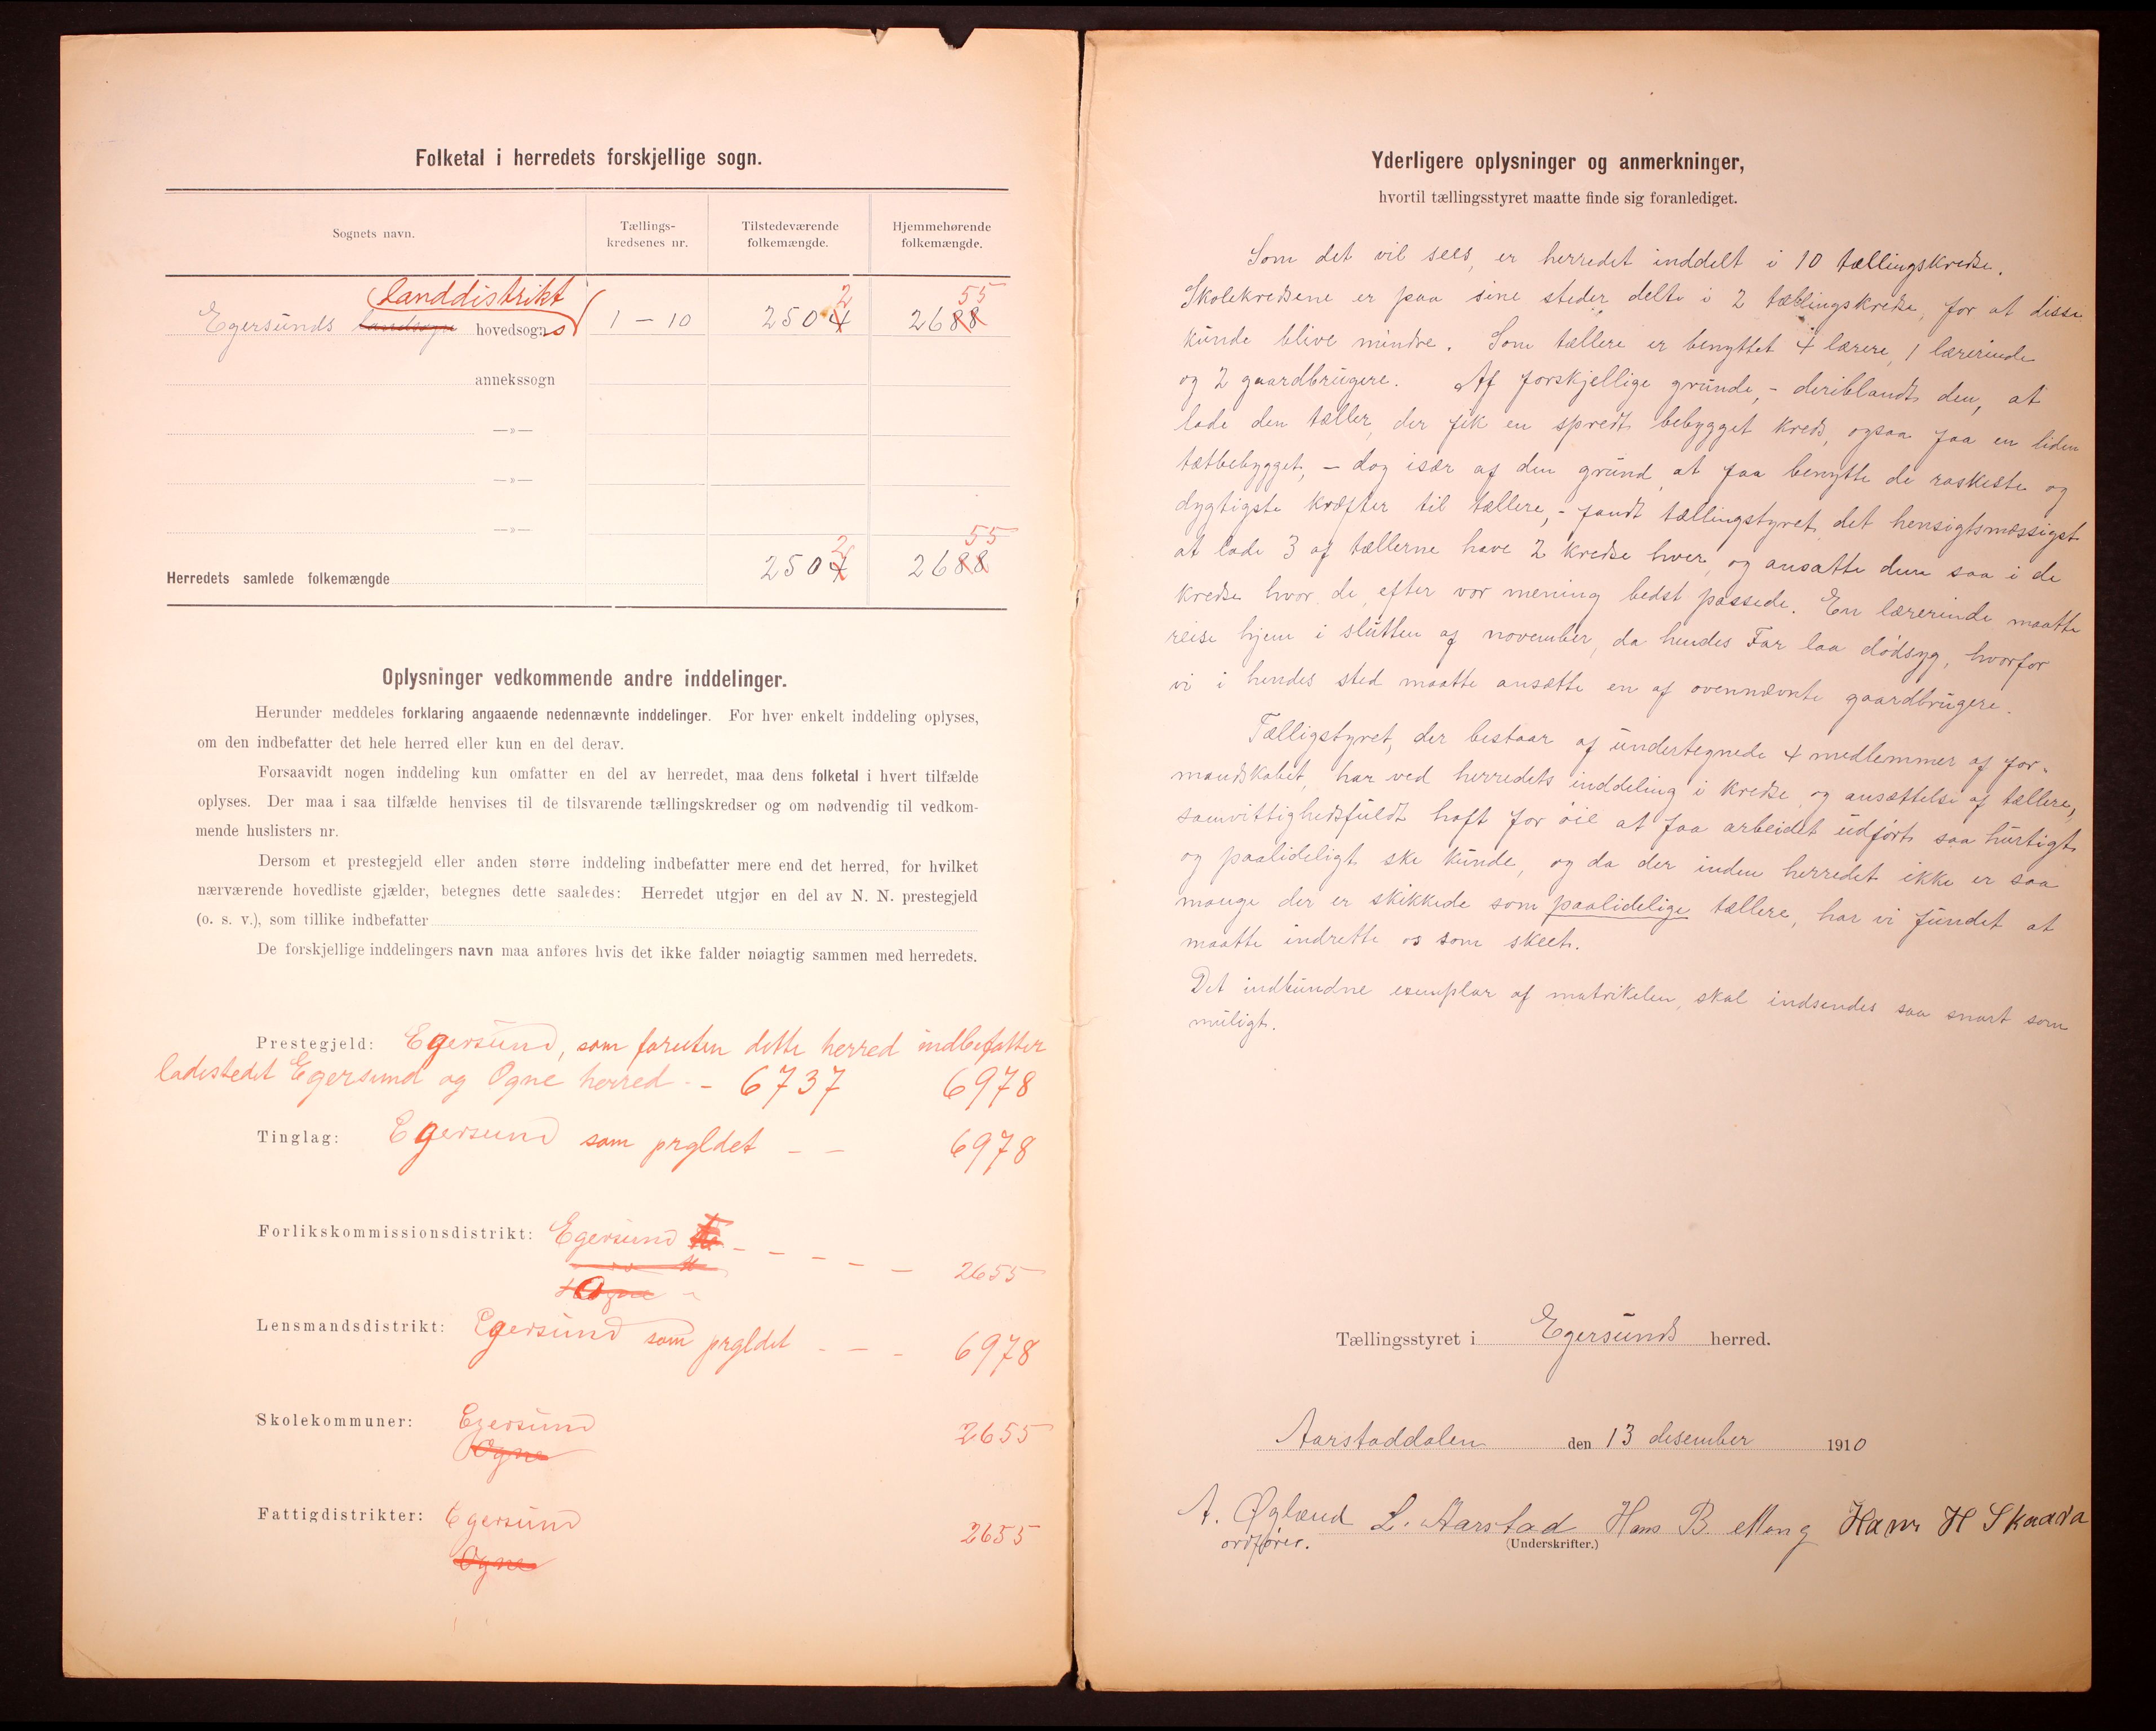 Folketal i herredets forskjellige sogn.
Sognets navn.
Tællings-
kredsenes nr.
Tilstedeværende
folkemængde.
Hjemmehørende
folkemængde.
landdistrikt
2
55
Egersunds landsogne hovedsogns 1 – 10 2504 2688
annekssogn
—»—
—»—
—»—
2
55
Herredets samlede folkemængde 2504 2688
Oplysninger vedkommende andre inddelinger.
Herunder meddeles forklaring angaaende nedennævnte inddelinger. For hver enkelt inddeling oplyses,
om den indbefatter det hele herred eller kun en del derav.
Forsaavidt nogen inddeling kun omfatter en del av herredet, maa dens folketal i hvert tilfælde
oplyses. Der maa i saa tilfælde henvises til de tilsvarende tællingskredser og om nødvendig til vedkom-
mende huslisters nr.
Dersom et prestegjeld eller anden større inddeling indbefatter mere end det herred, for hvilket
nærværende hovedliste gjælder, betegnes dette saaledes: Herredet utgjør en del av N. N. prestegjeld
(o. s. v.), som tillike indbefatter
De forskjellige inddelingers navn maa anføres hvis det ikke falder nøiagtig sammen med herredets.
Prestegjeld: Egersund, som foruten dette herred indbefatter
ladestedet Egersund og Ogne herred - - 6737 6978
Tinglag: Egersund som prgldet — — 6978
Forlikskommissionsdistrikt: Egersund – – – – – 2655
Ogne
Lensmandsdistrikt: Egersund som prgldet - - - 6978
Skolekommuner: Egersund 2655
Ogne
Fattigdistrikter: Egersund 2655
Ogne
Yderligere oplysninger og anmerkninger,
hvortil tællingsstyret maatte finde sig foranlediget.
Som det vil sees, er herredet inddelt i 10 tællingskredse.
Skolekredsene er paa sine steder delte i 2 tællingskredse, for at disse
kunde blive mindre. Som tællere er benyttet 4 lærere, 1 lærerinde
og 2 gaardbrugere. Af forskjellige grunde, - deriblandt den, at
lade den tæller, der fik en spredt bebygget kreds, ogsaa faa en liden
tætbebygget, – dog især af den grund, at faa benytte de raskeste og
dygtigste kræfter til tællere, - fandt tællingstyret, det hensigtsmæssigst
at lade 3 af tællerne have 2 kredse hver, og ansatte dem saa i de
kredse hvor de, efter vor mening bedst passede. En lærerinde maatte
reise hjem i slutten af november, da hendes Far laa dødsyg, hvorfor
vi i hendes sted maatte ansætte en af ovennævnte gaardbrugere.
Tælligstyret, der bestaar af undertegnede 4 medlemmer af for-
mandskabet, har ved herredets inddeling i kredse, og ansættelse af tællere,
samvittighedsfuldt haft for øie at faa arbeidet udført saa hurtigt
og paalideligt ske kunde, og da der inden herredet ikke er saa
mange der er skikkede som paalidelige tællere, har vi fundet at
maatte indrette os som skeet.
Det indbundne exemplar af matrikelen, skal indsendes saa snart som
muligt.
Tællingsstyret i Egersunds herred.
Aarstaddalen den 13 desember 1910
A. Øglænd L. Aarstad Hans B. Mong Hans H Skaara
ordfører.
(Underskrifter.)